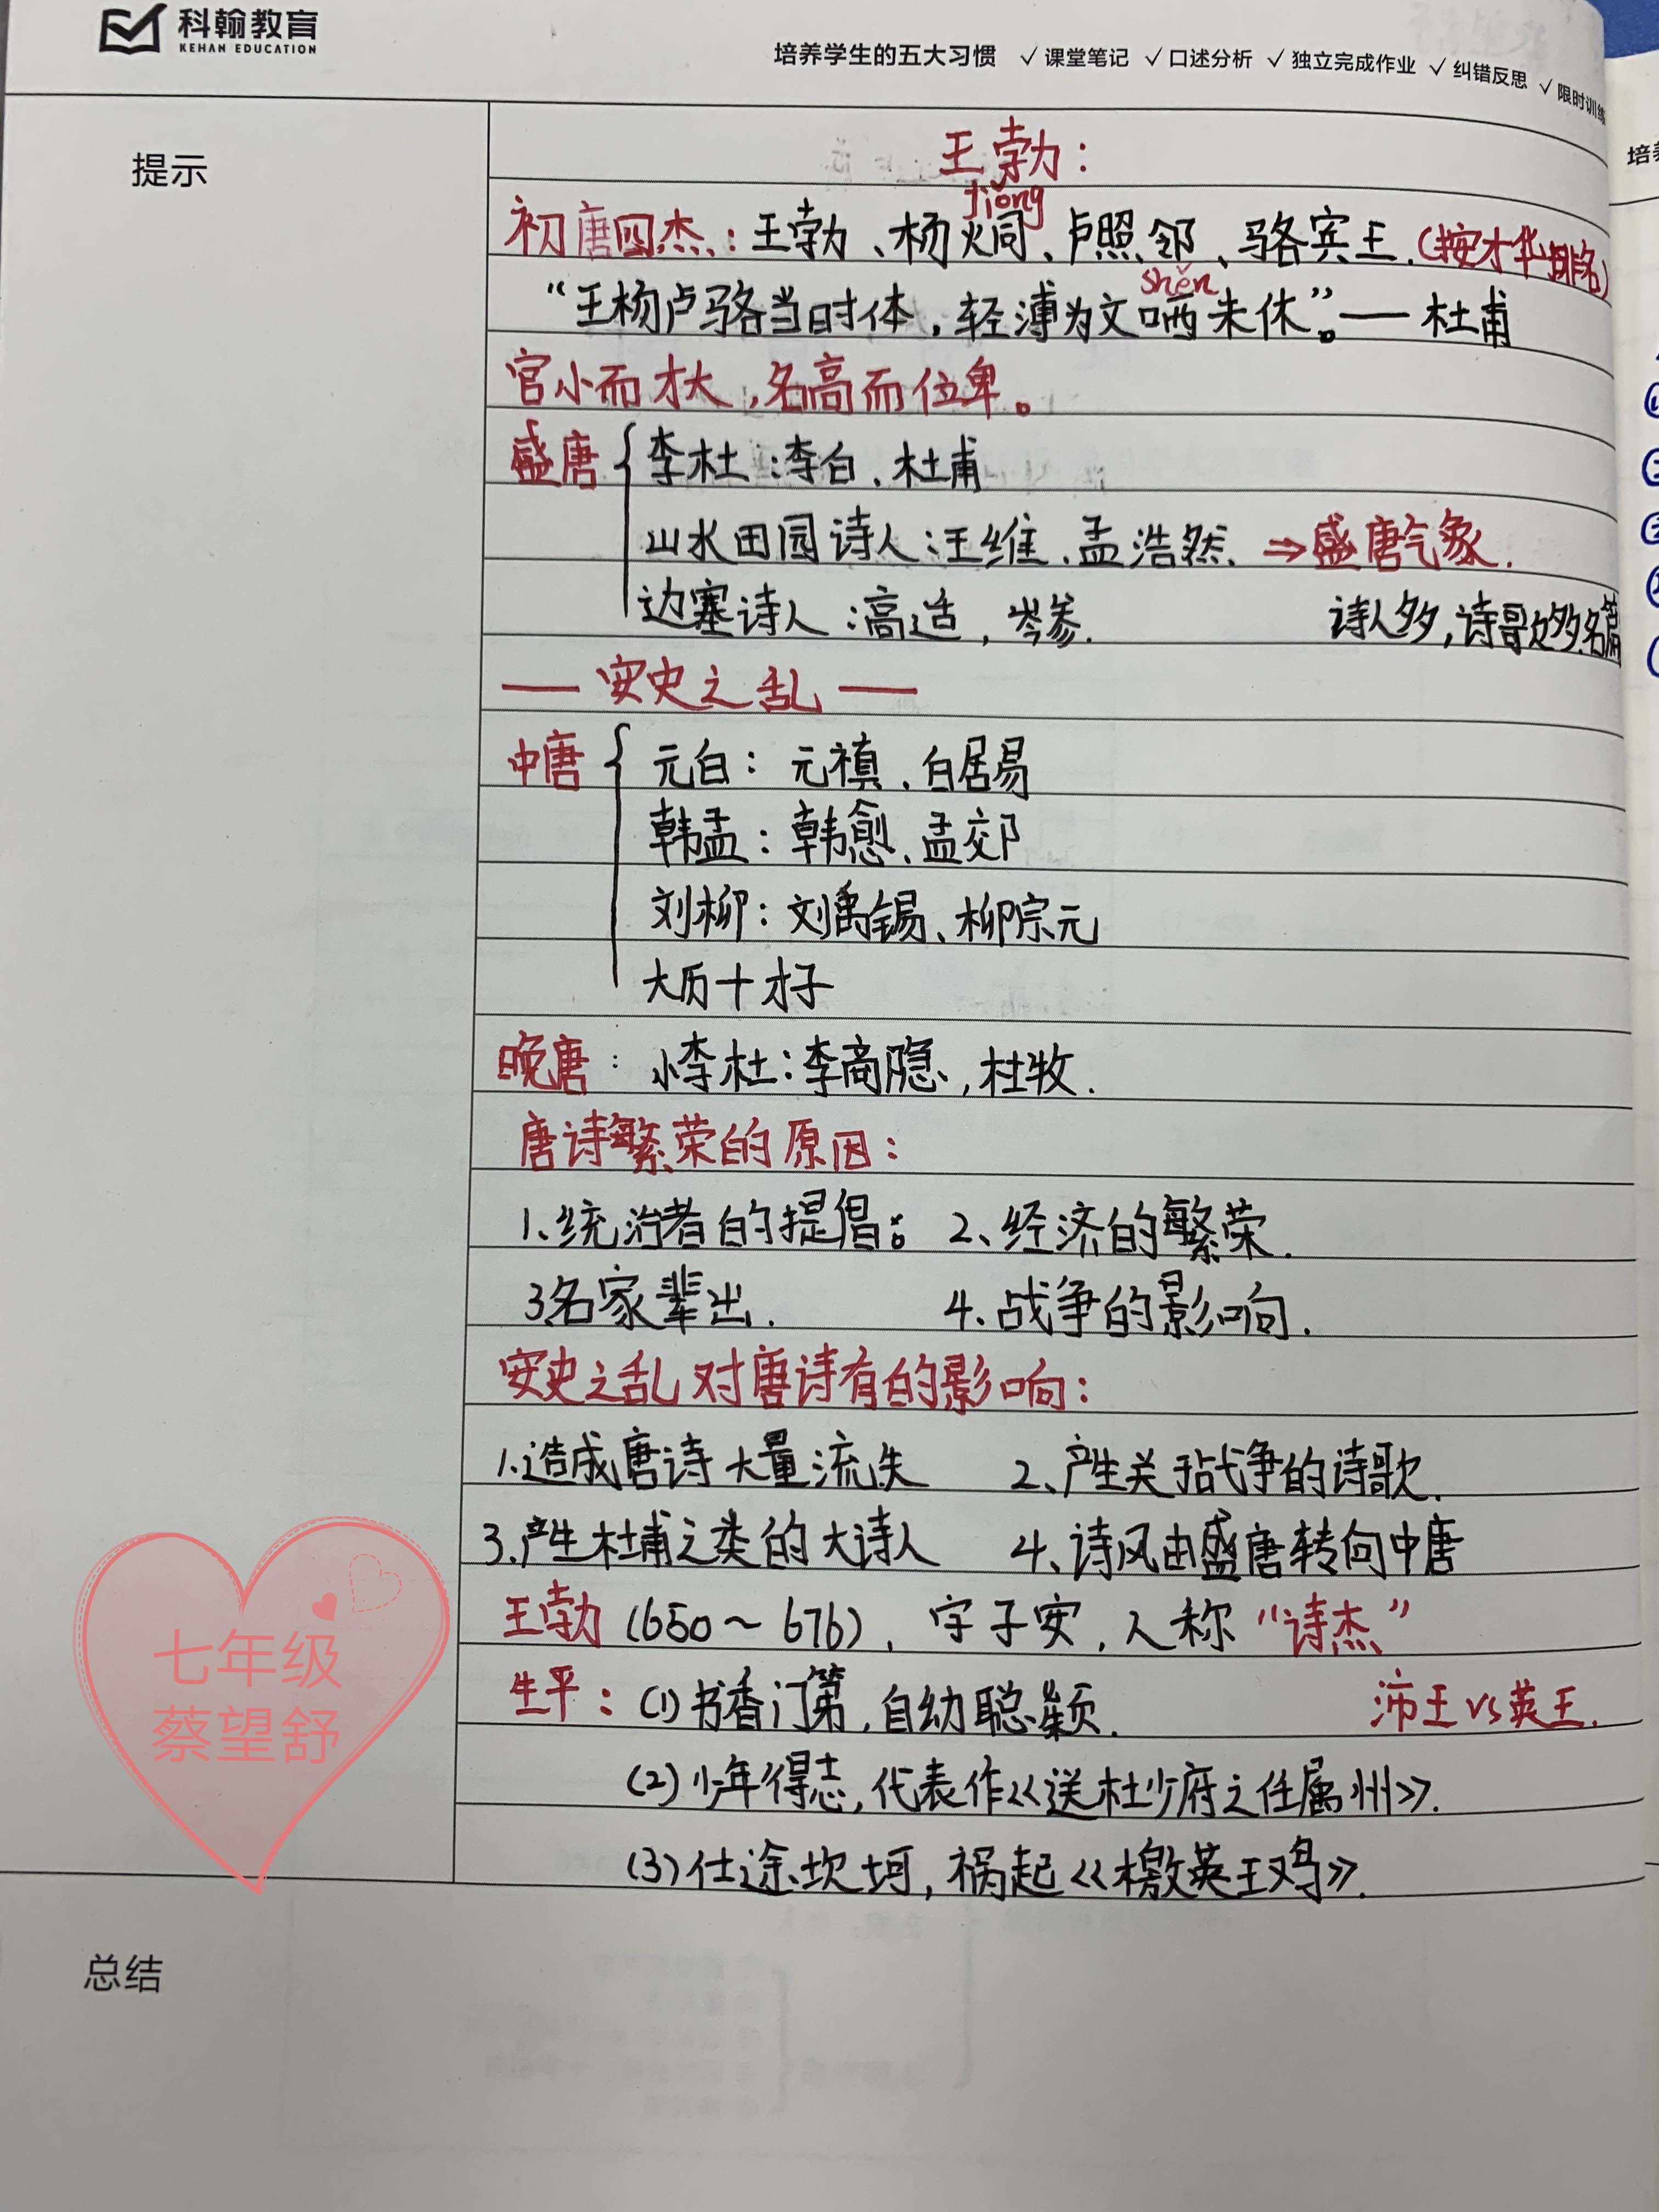 科翰教育
KEHAN EDUCATION
培养学生的五大习惯 ✓课堂笔记 ✓口述分析 ✓独立完成作业 ✓纠错反思 ✓限时训练
提示
王勃：
jiǒng
初唐四杰：王勃、杨炯、卢照邻、骆宾王.(按才华排名)
shěn
“王杨卢骆当时体，轻薄为文哂未休”。——杜甫
官小而才大，名高而位卑。
盛唐 李杜：李白、杜甫
山水田园诗人：王维、孟浩然. ⇒盛唐气象.
边塞诗人：高适，岑参. 诗人多，诗歌多,名篇
—— 安史之乱 ——
中唐 元白：元稹、白居易
韩孟：韩愈、孟郊
刘柳：刘禹锡、柳宗元
大历十才子
晚唐：小李杜：李商隐，杜牧.
唐诗繁荣的原因：
1、统治者的提倡。 2、经济的繁荣.
3名家辈出. 4、战争的影响.
安史之乱对唐诗有的影响：
1.造成唐诗大量流失 2、产生关于战争的诗歌.
3.产生杜甫之类的大诗人 4、诗风由盛唐转向中唐
王勃(650～676)，字子安，人称“诗杰”
生平：(1)书香门第，自幼聪颖. 沛王vs英王.
(2)少年得志，代表作《送杜少府之任属州》.
(3)仕途坎坷，祸起《檄英王鸡》.
七年级
蔡望舒
总结